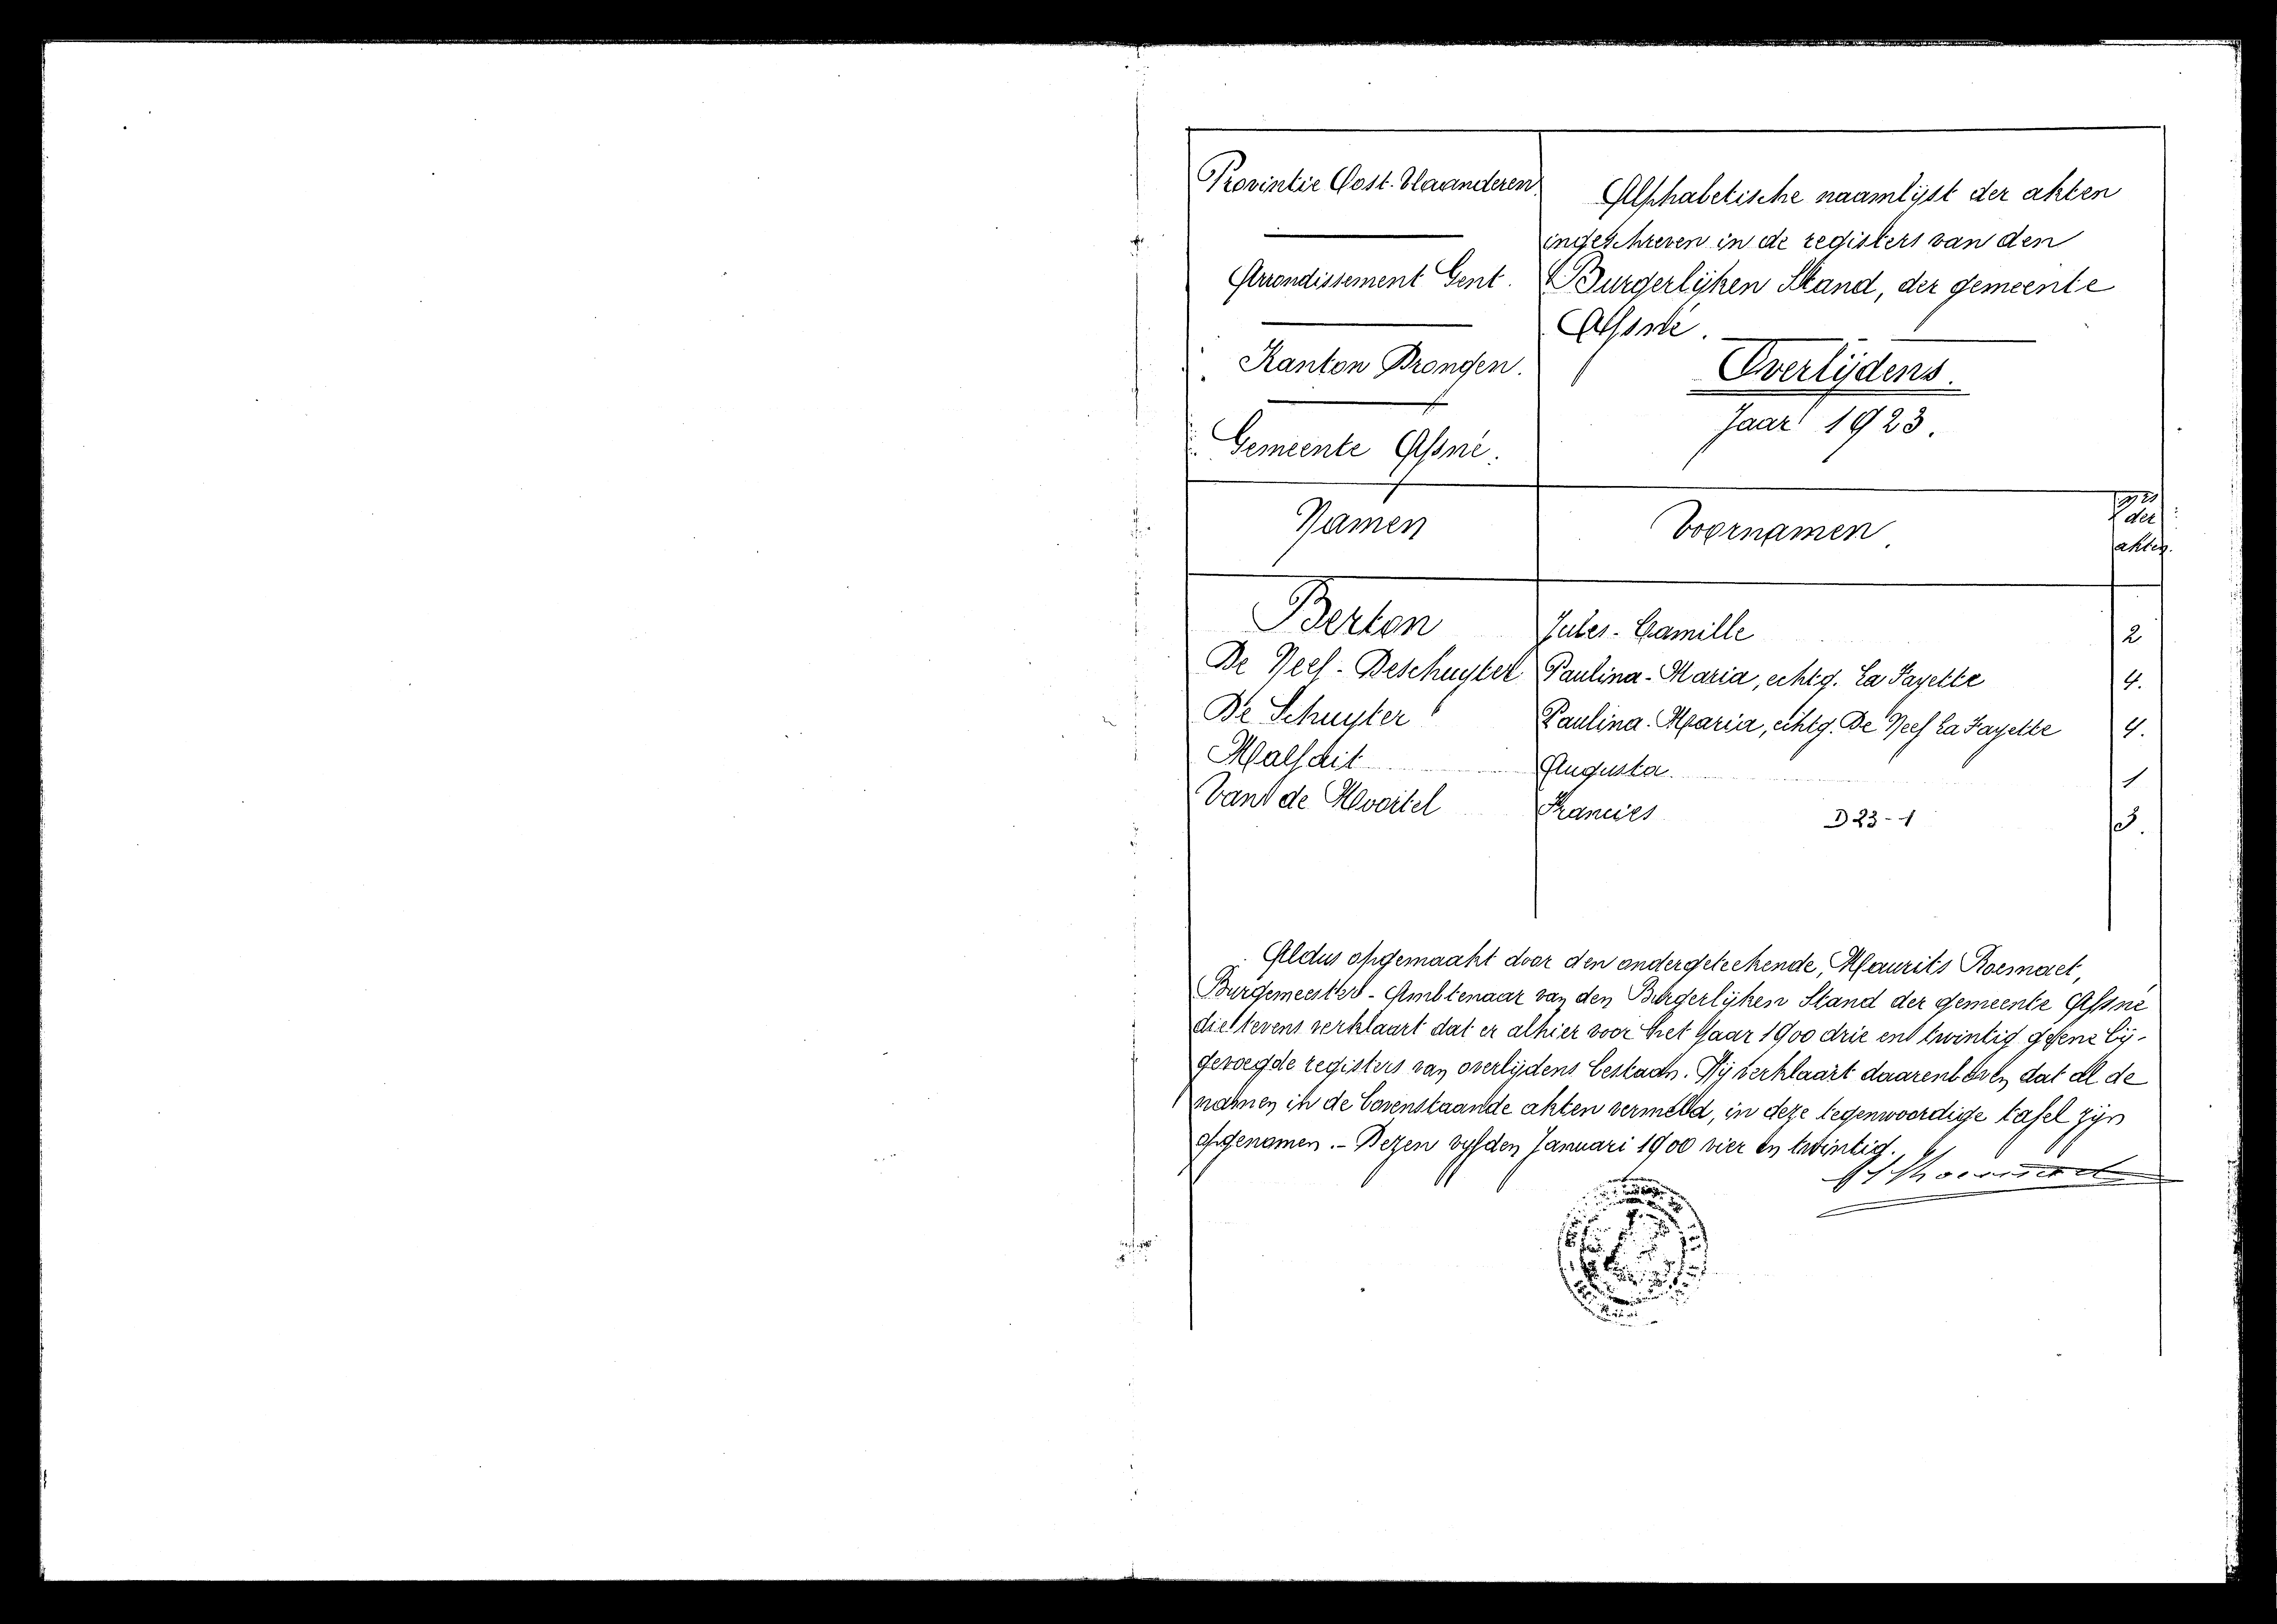 Provintie Oost-Vlaanderen
Arrondissement Gent.
Kanton Drongen.
Gemeente Afsné.
Alphabetische naamlijst der akten
ingeschreven in de registers van den
Burgerlijken Stand, der gemeente
Afsné.
Overlijdens.
Jaar 1923.
Namen Voornamen. Nrs
der
akten.
Berton Jules-Camille 2
De Neef-Deschuyter Paulina-Maria, echtg. La Fayette 4.
De Schuyter Paulina-Maria, echtg. De Neef La Fayette 4.
Malfait Augusta. 1
Van de Moortel Francies D23-1 3.
Aldus opgemaakt door den ondergeteekende, Maurits Roemaet,
Burgemeester-Ambtenaar van den Burgerlijken Stand der gemeente Afsné
die tevens verklaart dat er alhier voor het Jaar 1900 drie en twintig geene bij-
gevoegde registers van overlijdens bestaan. Hij verklaart daarenboven dat al de
namen in de bovenstaande akten vermeld, in deze tegenwoordige tafel zijn
opgenomen.- Dezen vyfden Januari 1900 vier en twintig.